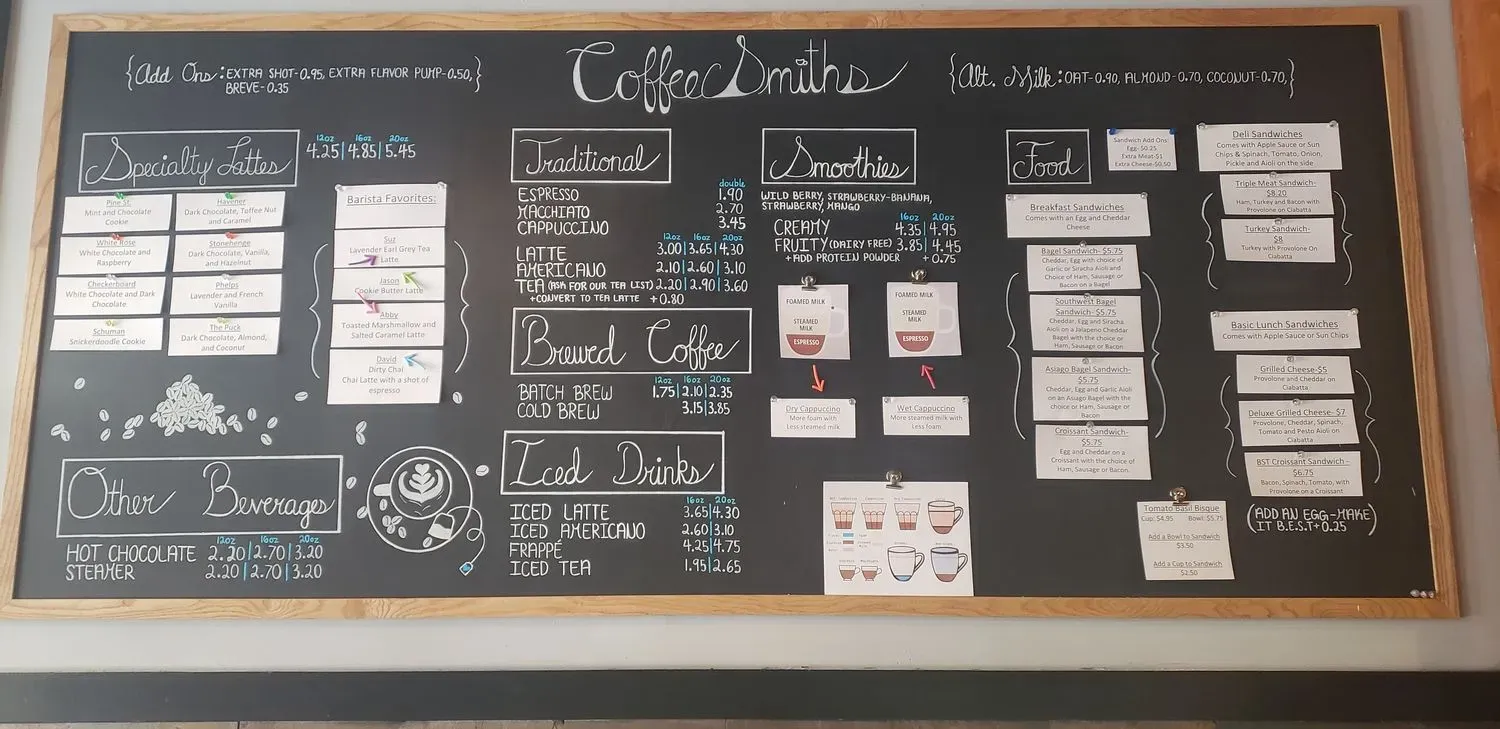 {Add Ons: EXTRA SHOT-0.95, EXTRA FLAVOR PUMP-0.50,}
BREVE-0.35
CoffeeSmiths
{Alt. Milk: OAT-0.90, ALMOND-0.70, COCONUT-0.70,}
Specialty Lattes
12oz 16oz 20oz
4.25|4.85|5.45
Pine St.
Mint and Chocolate
Cookie
Havener
Dark Chocolate, Toffee Nut
and Caramel
White Rose
White Chocolate and
Raspberry
Stonehenge
Dark Chocolate, Vanilla,
and Hazelnut
Checkerboard
White Chocolate and Dark
Chocolate
Phelps
Lavender and French
Vanilla
Schuman
Snickerdoodle Cookie
The Puck
Dark Chocolate, Almond,
and Coconut
Barista Favorites:
Suz
Lavender Earl Grey Tea
Latte
Jason
Cookie Butter Latte
Abby
Toasted Marshmallow and
Salted Caramel Latte
David
Dirty Chai
Chai Latte with a shot of
espresso
Other Beverages
12oz 16oz 20oz
HOT CHOCOLATE 2.20|2.70|3.20
STEAMER 2.20|2.70|3.20
Traditional
double
ESPRESSO 1.90
MACCHIATO 2.70
CAPPUCCINO 3.45
12oz 16oz 20oz
LATTE 3.00|3.65|4.30
AMERICANO 2.10|2.60|3.10
TEA (ASK FOR OUR TEA LIST) 2.20|2.90|3.60
+CONVERT TO TEA LATTE +0.80
Brewed Coffee
12oz 16oz 20oz
BATCH BREW 1.75|2.10|2.35
COLD BREW 3.15|3.85
Iced Drinks
16oz 20oz
ICED LATTE 3.65|4.30
ICED AMERICANO 2.60|3.10
FRAPPÉ 4.25|4.75
ICED TEA 1.95|2.65
Smoothies
WILD BERRY, STRAWBERRY-BANANA,
STRAWBERRY, MANGO
16oz 20oz
CREAMY 4.35|4.95
FRUITY (DAIRY FREE) 3.85|4.45
+ADD PROTEIN POWDER +0.75
FOAMED MILK
STEAMED
MILK
ESPRESSO
FOAMED MILK
STEAMED
MILK
ESPRESSO
Dry Cappuccino
More foam with
Less steamed milk
Wet Cappuccino
More steamed milk with
Less foam
Food
Sandwich Add Ons:
Egg- $0.25
Extra Meat-$1
Extra Cheese-$0.50
Breakfast Sandwiches
Comes with an Egg and Cheddar
Cheese
Bagel Sandwich- $5.75
Cheddar, Egg with choice of
Garlic or Siracha Aioli and
Choice of Ham, Sausage or
Bacon on a Bagel
Southwest Bagel
Sandwich- $5.75
Cheddar, Egg and Siracha
Aioli on a Jalapeno Cheddar
Bagel with the choice or
Ham, Sausage or Bacon
Asiago Bagel Sandwich-
$5.75
Cheddar, Egg and Garlic Aioli
on an Asiago Bagel with the
choice or Ham, Sausage or
Bacon
Croissant Sandwich-
$5.75
Egg and Cheddar on a
Croissant with the choice of
Ham, Sausage or Bacon.
Deli Sandwiches
Comes with Apple Sauce or Sun
Chips & Spinach, Tomato, Onion,
Pickle and Aioli on the side
Triple Meat Sandwich-
$8.20
Ham, Turkey and Bacon with
Provolone on Ciabatta
Turkey Sandwich-
$8
Turkey with Provolone On
Ciabatta
Basic Lunch Sandwiches
Comes with Apple Sauce or Sun Chips
Grilled Cheese-$5
Provolone and Cheddar on
Ciabatta
Deluxe Grilled Cheese- $7
Provolone, Cheddar, Spinach,
Tomato and Pesto Aioli on
Ciabatta
BST Croissant Sandwich -
$6.75
Bacon, Spinach, Tomato, with
Provolone on a Croissant
(ADD AN EGG-MAKE
IT B.E.S.T+0.25)
Tomato Basil Bisque
Cup: $4.95 Bowl: $5.75
Add a Bowl to Sandwich
$3.50
Add a Cup to Sandwich
$2.50